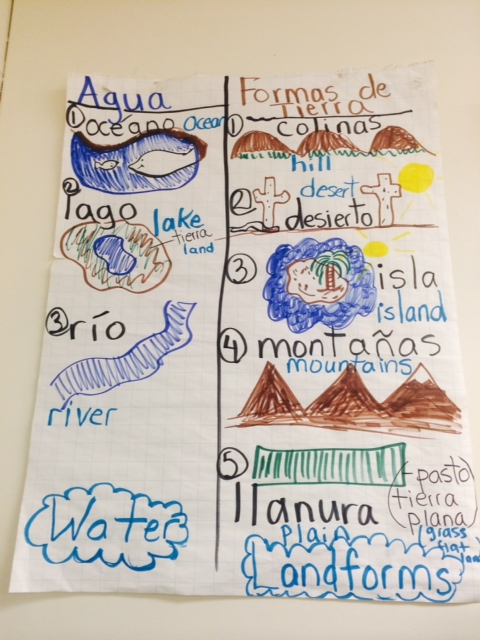 Agua
① océano Ocean
② lago
lake
tierra
land
③ río
river
Water
Formas de
Tierra
① colinas
hill
② desert
desierto
③ isla
island
④ montañas
mountains
⑤ llanura
plain
(-pasto
tierra
plana)
(grass
flat
Landforms